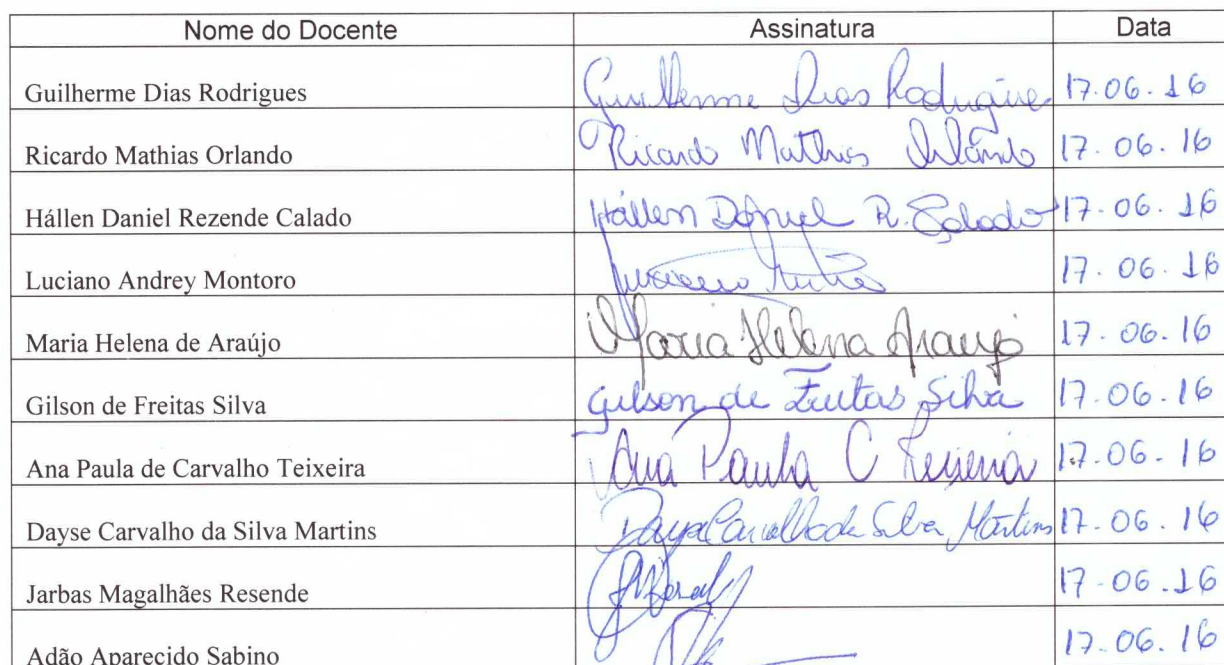 Nome do Docente Assinatura Data
Guilherme Dias Rodrigues Guilherme Dias Rodrigues 17.06.16
Ricardo Mathias Orlando Ricardo Mathias Orlando 17.06.16
Hállen Daniel Rezende Calado Hállen Daniel R. Calado 17.06.16
Luciano Andrey Montoro Luciano 17.06.16
Maria Helena de Araújo Maria Helena Araujo 17.06.16
Gilson de Freitas Silva Gilson de Freitas Silva 17.06.16
Ana Paula de Carvalho Teixeira Ana Paula C Teixeira 17.06.16
Dayse Carvalho da Silva Martins Dayse Carvalho da Silva Martins 17.06.16
Jarbas Magalhães Resende 17.06.16
Adão Aparecido Sabino 17.06.16